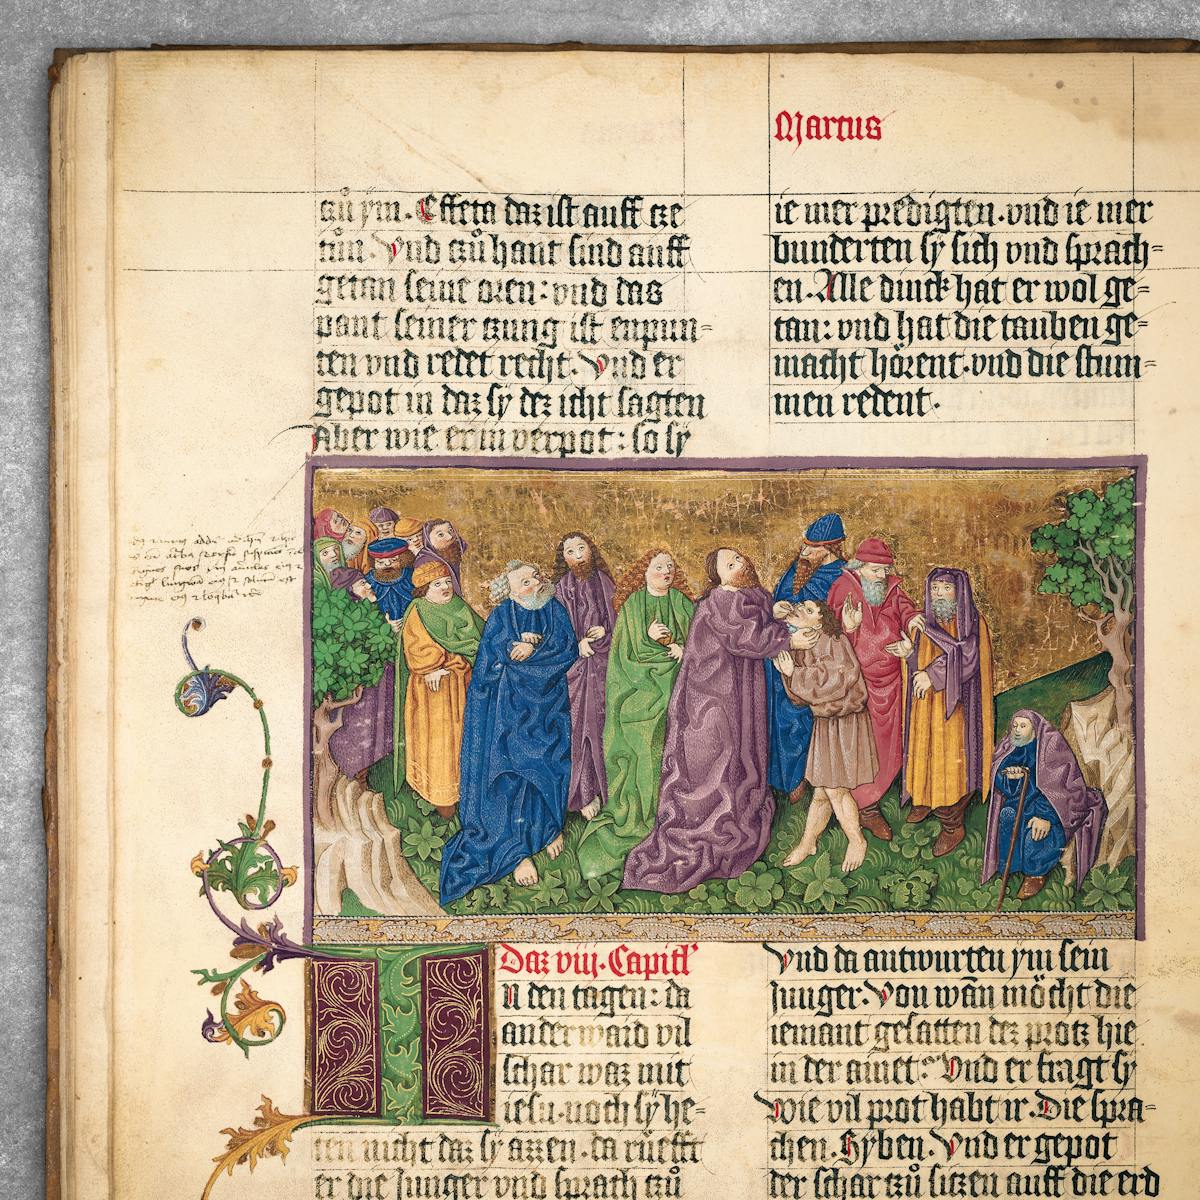 Marcus
zů ym. Effeta daz ist auff tze
tůn. Vnd zů hant sind auff
getan seine oren: vnd das
pant seiner zung ist enpun=
ten vnd redet recht. Vnd er
gepot in daz sy dez icht sagten
Aber wie er in verpot: so sy
ie mer predigten. vnd ie mer
bunderten sy sich vnd sprach=
en. Alle dinck hat er wol ge=
tan: vnd hat die tauben ge=
macht hörent. vnd die stum=
men redent.
Daz viij. Capitl'
IN den tagen: da
anderwaid vil
schar waz mit
iesu. noch sy he=
ten nicht daz sy azzen. da růefft
er die Junger vnd sprach zů
Vnd da antwurten ym sein
Junger. Von wān möcht die
iemant gesatten dez protz hie
in der ainet? Vnd er fragt sy
Wie vil prot habt ir. Die spra=
chen. Syben. Vnd er gepot
der schar zů sitzen auff die erd